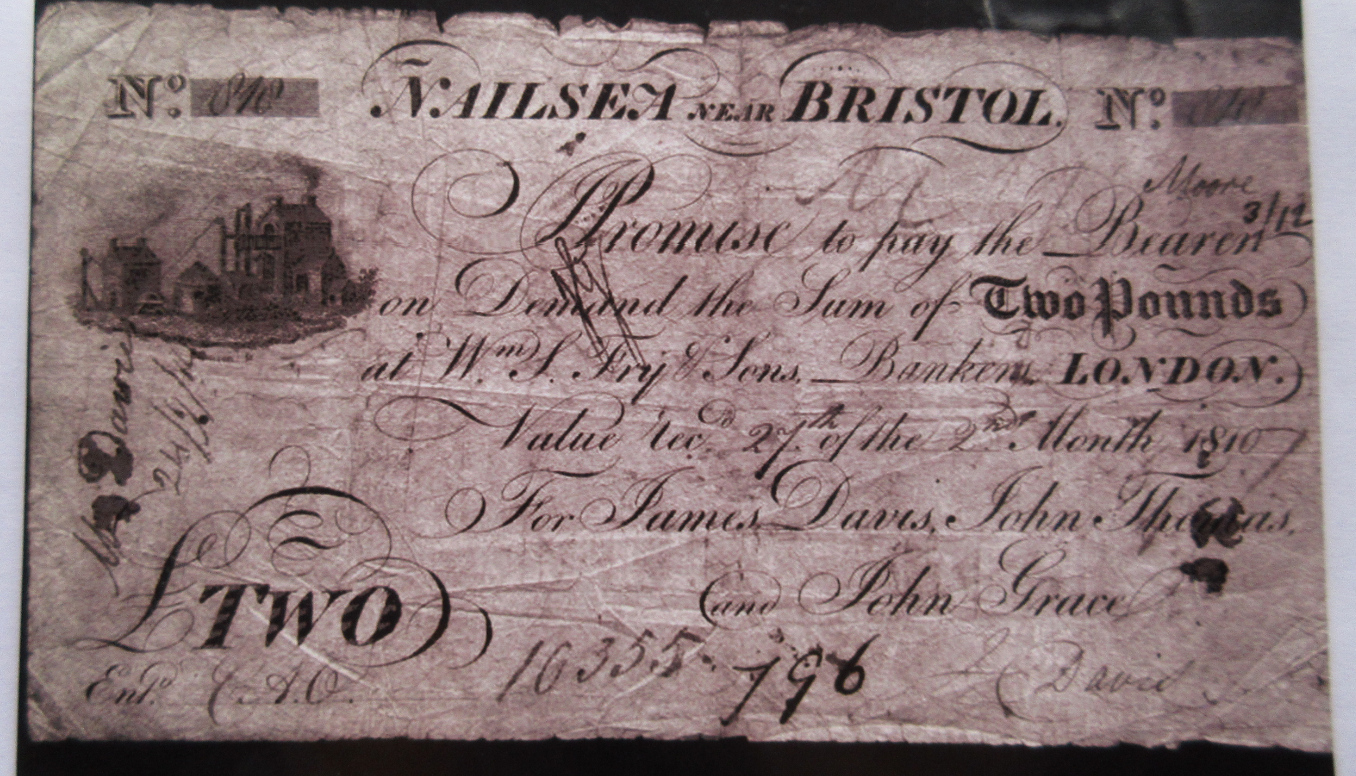 No. NAILSEA NEAR BRISTOL. No.
Moore
3/12
I Promise to pay the Bearer
on Demand the Sum of Two Pounds
at Wm. S. Fry & Sons, Bankers LONDON.
Value rec'd 27th of the 2nd Month 1810
For James Davis, John Thomas,
and John Grace
£ TWO
Entd. C. A. O.
16355
796
Davis
Davis